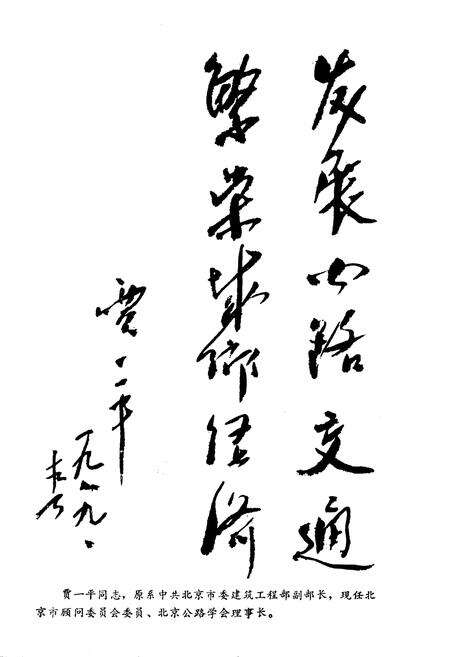 发展公路交通
繁荣城乡经济
贾一平
一九八九、
贾一平同志，原系中共北京市委建筑工程部副部长，现任北
京市顾问委员会委员、北京公路学会理事长。